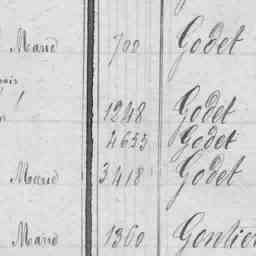 Marie 700 Godet
1248 Godet
4653 Godet
Marie 3418 Godet
Marie 1360 Gontier